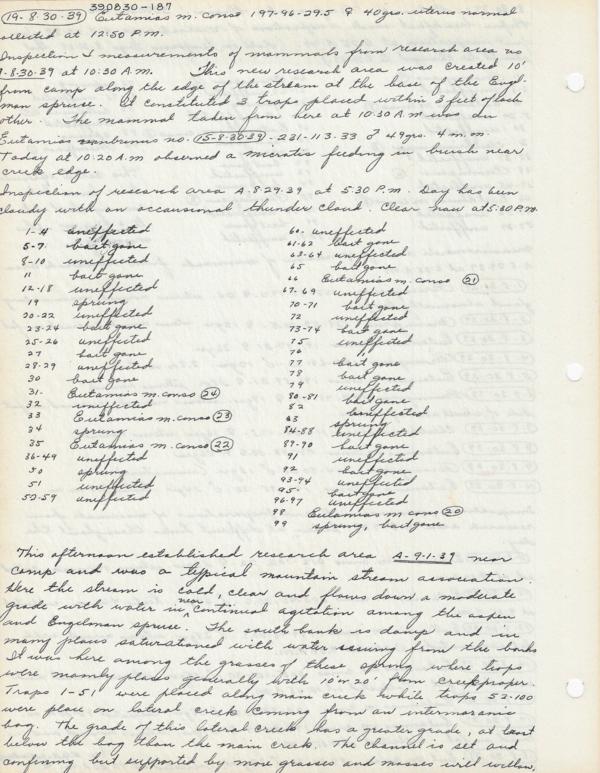 390830-187
(19-8-30-39) Eutamias m. conso 197-96-29.5 ♀ 40 grs. uterus normal
collected at 12:50 P.M.
Inspection & measurements of mammals from research area no
A-8.30.39 at 10:30 A.M. This new research area was created 10'
from camp along the edge of the stream at the base of the Engl-
man spruse. It constituted 3 traps placed within 3 feet of each
other. The mammal taken from here at 10:30 A.M was an
Eutamias no. (15-8-30-39) - 231-113-33 ♂ 49 grs. 4 m.m.
Today at 10:20 A.m observed a microtis feeding in brush near
creek edge.
Inspection of research area A.8.29.39 at 5:30 P.m. Day has been
cloudy with an occaunsional thunder cloud. Clear now at 5:30 P.M.
1-4 uneffected
5-7 bait gone
8-10 uneffected
11 bait gone
12-18 uneffected
19 sprung
20-22 uneffected
23-24 bait gone
25-26 uneffected
27 bait gone
28-29 uneffected
30 bait gone
31- Eutamias m. conso (24)
32 uneffected
33 Eutamias m. conso (23)
34 sprung
35 Eutamias m. conso (22)
36-49 uneffected
50 sprung
51 uneffected
52-59 uneffected
60- uneffected
61-62 bait gone
63-64 uneffected
65 bait gone
66 Eutamias m. conso (21)
67-69 uneffected
70-71 bait gone
72 uneffected
73-74 bait gone
75 uneffected
76 "
77 bait gone
78 bait gone
79 uneffected
80-81 bait gone
82 uneffected
83 sprung
84-88 uneffected
89-90 bait gone
91 uneffected
92 bait gone
93-94 uneffected
95- bait gone
96-97 uneffected
98 Eutamias m cons (20)
99 sprung, bait gone
This afternoon established research area A-9-1-39 near
camp and was a typical mountain stream association.
Here the stream is cold, clear and flows down a moderate
grade with water in near continual agitation among the aspen
and Engelman spruse. The south bank is damp and in
many places saturationed with water issuing from the banks
It was here among the grasses of these spring where traps
were mainly places generally with 10' or 20' from creek proper.
Traps 1-51 were placed along main creek while traps 52-100
were place on lateral creek coming from an intermoranic
bog. The grade of this lateral creek has a greater grade, at least
below the bog than the main creek. The channel is set and
confining but supported by more grasses and mosses will willow,